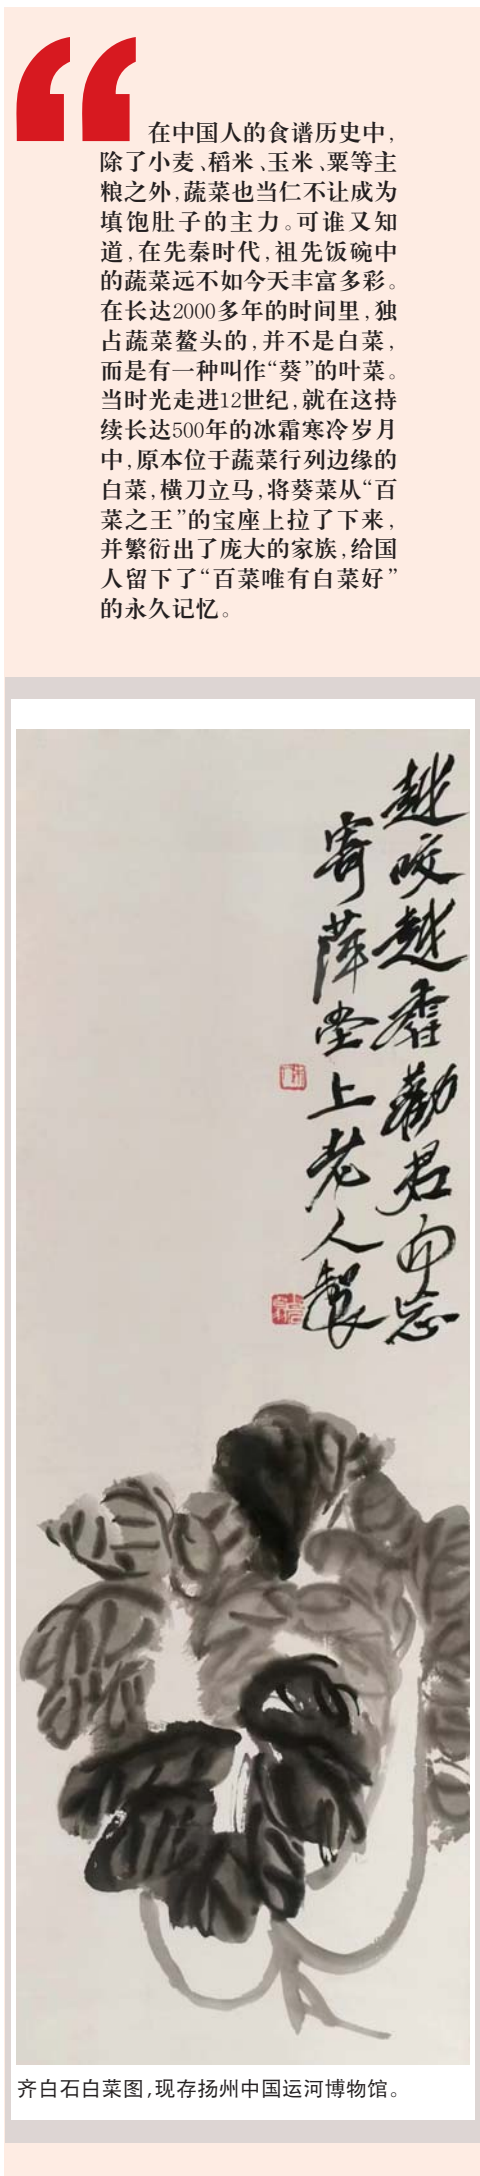 在中国人的食谱历史中，
除了小麦、稻米、玉米、粟等主
粮之外，蔬菜也当仁不让成为
填饱肚子的主力。可谁又知
道，在先秦时代，祖先饭碗中
的蔬菜远不如今天丰富多彩。
在长达2000多年的时间里，独
占蔬菜鳌头的，并不是白菜，
而是有一种叫作“葵”的叶菜。
当时光走进12世纪，就在这持
续长达500年的冰霜寒冷岁月
中，原本位于蔬菜行列边缘的
白菜，横刀立马，将葵菜从“百
菜之王”的宝座上拉了下来，
并繁衍出了庞大的家族，给国
人留下了“百菜唯有白菜好”
的永久记忆。
越咬越香勸君勿忘
寄萍堂上老人製
齐白石白菜图，现存扬州中国运河博物馆。